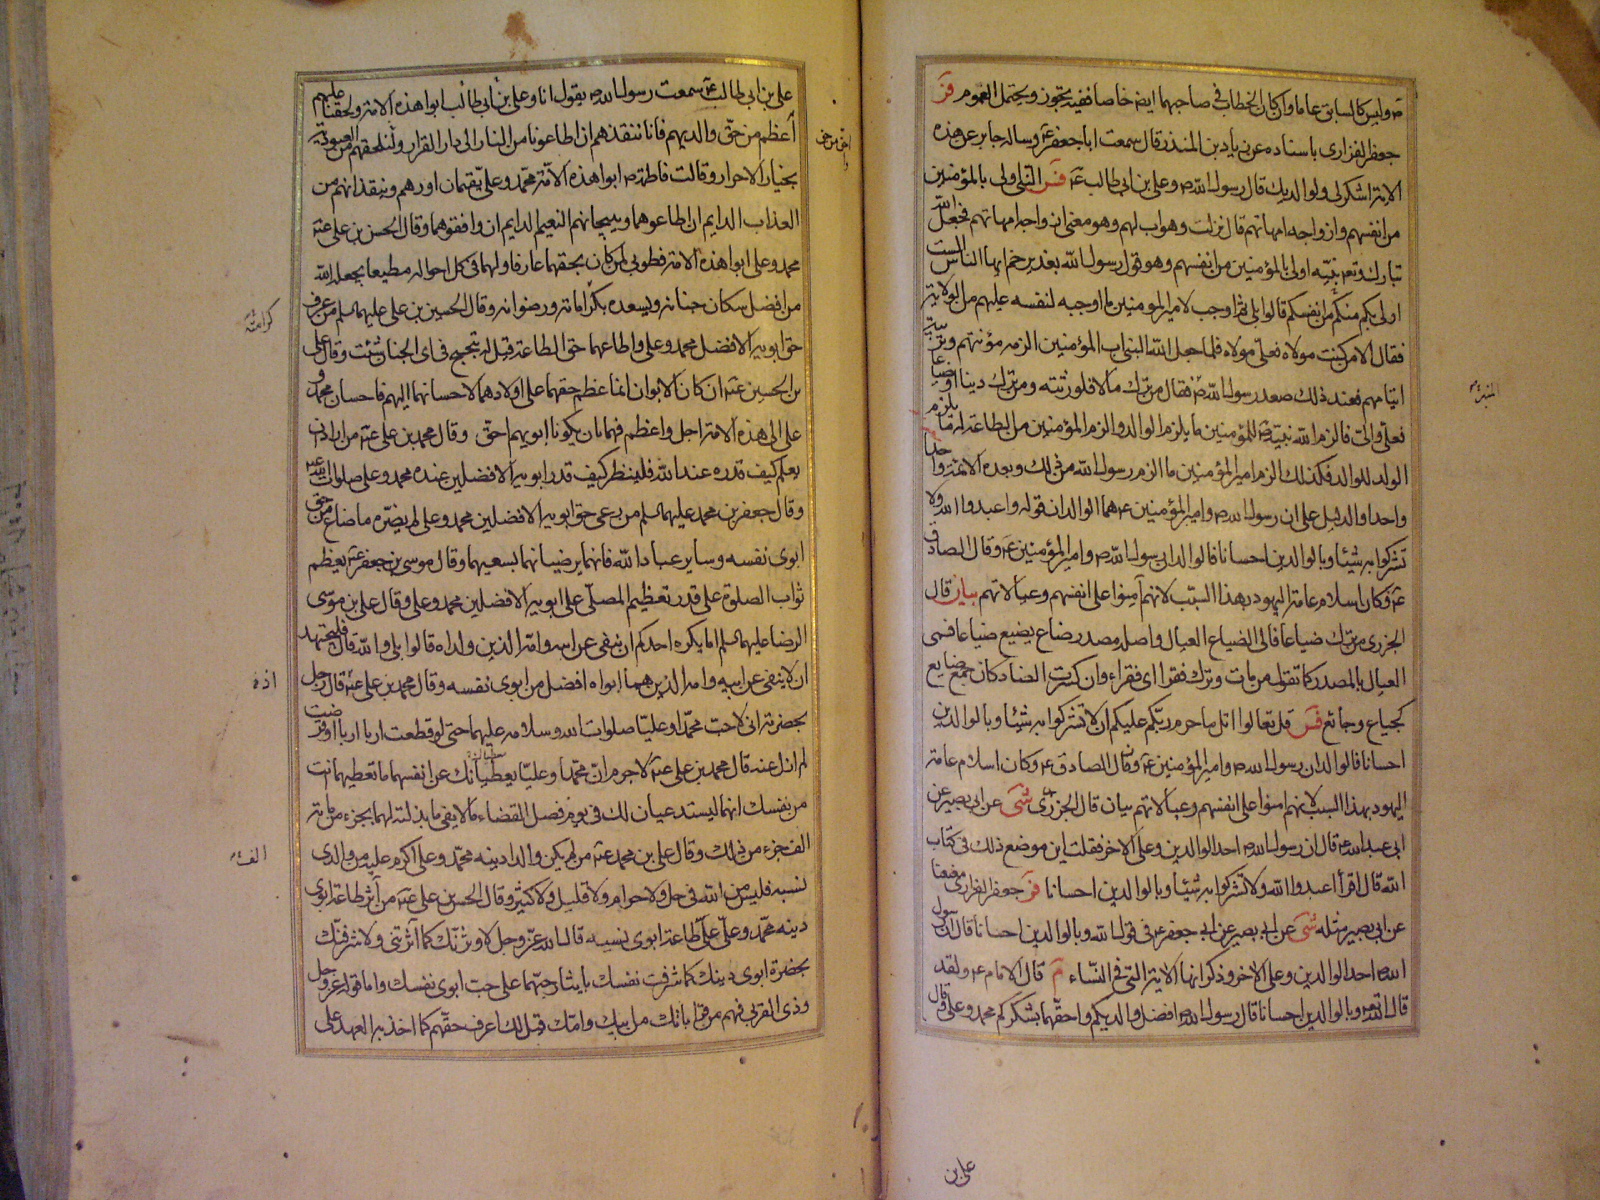 وليس كالسابق عاما وان كان الخطاب في صاحبهما ايضا خاصا ففيه تجوز ويحتمل العموم فر
جعفر الفزاري باسناده عن زياد بن المنذر قال سمعت ابا جعفر ع وساله جابر عن هذه
الاية اشكر لي ولوالديك قال رسول الله ص وعلي بن ابي طالب ع فس النبي اولى بالمؤمنين
من انفسهم وازواجه امهاتهم قال نزلت وهو اب لهم وهو معنى ازواجه امهاتهم فجعل الله
تبارك وتع نبيه اولى بالمؤمنين من انفسهم وهو قول رسول الله بغدير خم ايها الناس الست
اولى بكم منكم من انفسكم قالوا بلى ثم اوجب لامير المومنين ما اوجبه لنفسه عليهم من الولاية
فقال الا من كنت مولاه فعلي مولاه فلما جعل الله النبي اب المؤمنين الزمه مؤنتهم وتربية
ايتامهم فعند ذلك صعد رسول الله ص فقال من ترك مالا فلورثته ومن ترك دينا او ضياعا
فعلي والي فالزم الله نبيه للمؤمنين ما يلزم الوالد والزم المؤمنين من الطاعة له ما يلزم
الولد للوالد فكذلك الزم امير المؤمنين ما الزم رسول الله من ذلك وبعده الائمة واحدا
واحدا والدليل على ان رسول الله ص وامير المؤمنين ع هما الوالدان قوله واعبدوا الله ولا
تشركوا به شيئا وبالوالدين احسانا فالوالدان رسول الله ص وامير المؤمنين ع وقال الصادق
ع وكان اسلام عامة اليهود بهذا السبب لانهم آمنوا على انفسهم وعيالاتهم بيان قال
الجزري من ترك ضياعا فالي الضياع العيال واصله مصدر ضاع يضيع ضياعا فسمى
العيال بالمصدر كما تقول من مات وترك فقرا اي فقراء وان كسرت الضاد كان جمع ضايع
كجياع وجائع فس قل تعالوا اتل ما حرم ربكم عليكم ان لا تشركوا به شيئا وبالوالدين
احسانا فالوالدان رسول الله ص وامير المؤمنين ع وقال الصادق ع وكان اسلام عامة
اليهود بهذا السبب لانهم امنوا على انفسهم وعيالاتهم بيان قال الجزري شى عن ابي بصير عن
ابي عبد الله ع قال ان رسول الله ص احد الوالدين وعلي الاخر فقلت اين موضع ذلك في كتاب
الله قال اقرأ اعبدوا الله ولا تشركوا به شيئا وبالوالدين احسانا فر جعفر الفزاري معنعنا
عن ابي بصير مثله شى عن ابي بصير عن ابي جعفر ع في قول الله وبالوالدين احسانا قال ان رسول
الله احد الوالدين وعلي الاخر وذكر انها الاية التي في النساء م قال الامام ع ولقد
قال الله تع وبالوالدين احسانا قال رسول الله ص افضل والديكم واحقهما بشكركم محمد وعلي قال
علي بن
علي بن ابي طالب ع سمعت رسول الله ص يقول انا وعلي بن ابي طالب ابوا هذه الامة ولحقنا عليهم
أعظم من حق والديهم فانا ننقذهم ان اطاعونا من النار الى دار القرار ونلحقهم من العبودية
بخيار الاحرار وقالت فاطمة ابوا هذه الامة محمد وعلي يقيمان اودهم وينقذانهم من
العذاب الدايم ان اطاعوهما ويبيحانهم النعيم الدايم ان وافقوهما وقال الحسن بن علي ع
محمد وعلي ابوا هذه الامة فطوبى لمن كان بحقهما عارفا ولهما في كل احواله مطيعا يجعله الله
من افضل سكان جنانه ويسعده بكراماته ورضوانه وقال الحسين بن علي عليهما السلم من عرف
حق ابويه الافضل محمد وعلي واطاعهما حق الطاعة قيل له تبحبح في اي الجنان شئت وقال علي
بن الحسين ع ان كان الابوان انما عظم حقهما على اولادهما لاحسانهما اليهم فاحسان محمد و
علي الى هذه الامة اجل واعظم فهما بان يكونا ابويهم احق وقال محمد بن علي ع من اراد ان
يعلم كيف قدره عند الله فلينظر كيف قدر ابويه الافضلين عنده محمد وعلي صلوات الله
وقال جعفر بن محمد عليهما السلم من رعى حق ابويه الافضلين محمد وعلي لم يضره ما ضاع من حق
ابوي نفسه وساير عباد الله فانهما يرضيانهما بسعيهما وقال موسى بن جعفر ع يعظم
ثواب الصلوة على قدر تعظيم المصلي على ابويه الافضلين محمد وعلي وقال علي بن موسى
الرضا عليهما السلم اما يكره احدكم ان ينفى عن ابيه وامه الذين ولداه قالوا بلى والله قال فليجتهد
ان لا ينفى عن ابيه وامه الذين هما ابواه افضل من ابوي نفسه وقال محمد بن علي ع قال رجل
بحضرته اني لاحب محمدا وعليا صلوات الله وسلامه عليهما حتى لو قطعت اربا اربا او قرضت
لم ازل عنه قال محمد بن علي ع لا جرم ان محمدا وعليا يعطيانك عن انفسهما ما تعطيهما انت
من نفسك انهما ليستدعيان لك في يوم فصل القضاء ما لا يفي ما بذلته لهما بجزء من مائة
الف جزء من ذلك وقال علي بن محمد ع من لم يكن والدا دينه محمد وعلي اكرم عليه من والدي
نسبه فليس من الله في حل ولا حرام ولا قليل ولا كثير وقال الحسن بن علي ع من آثر طاعة ابوي
دينه محمد وعلي على طاعة ابوي نسبه قال الله عز وجل لاوثرنك كما آثرتني ولاشرفنك
بحضرة ابوي دينك كما شرفت نفسك بايثار حبهما على حب ابوي نفسك واما قوله عز وجل
وذي القربى فهم من قراباتك من ابيك وامك قيل لك اعرف حقهم كما اخذ به العهد على
كراماته
اذه
الف